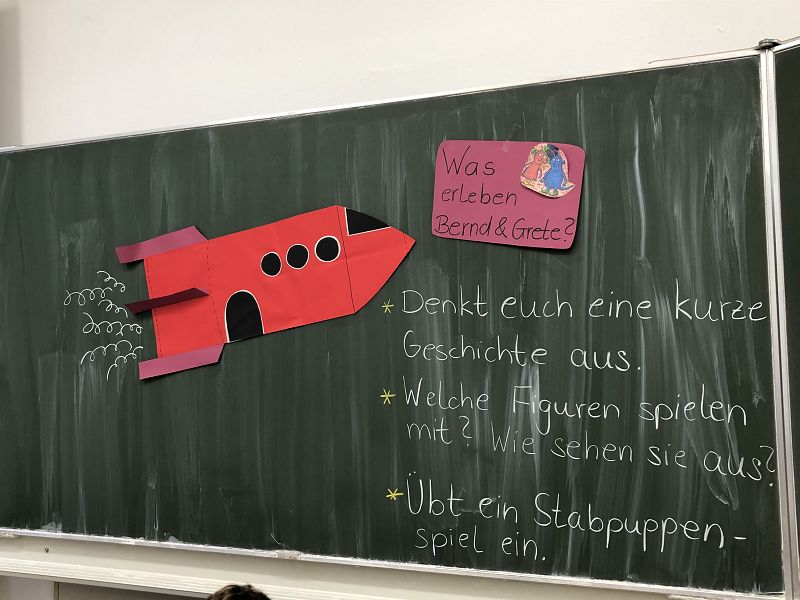 Was
erleben
Bernd & Grete?
* Denkt euch eine kurze
Geschichte aus.
* Welche Figuren spielen
mit? Wie sehen sie aus?
* Übt ein Stabpuppen-
spiel ein.